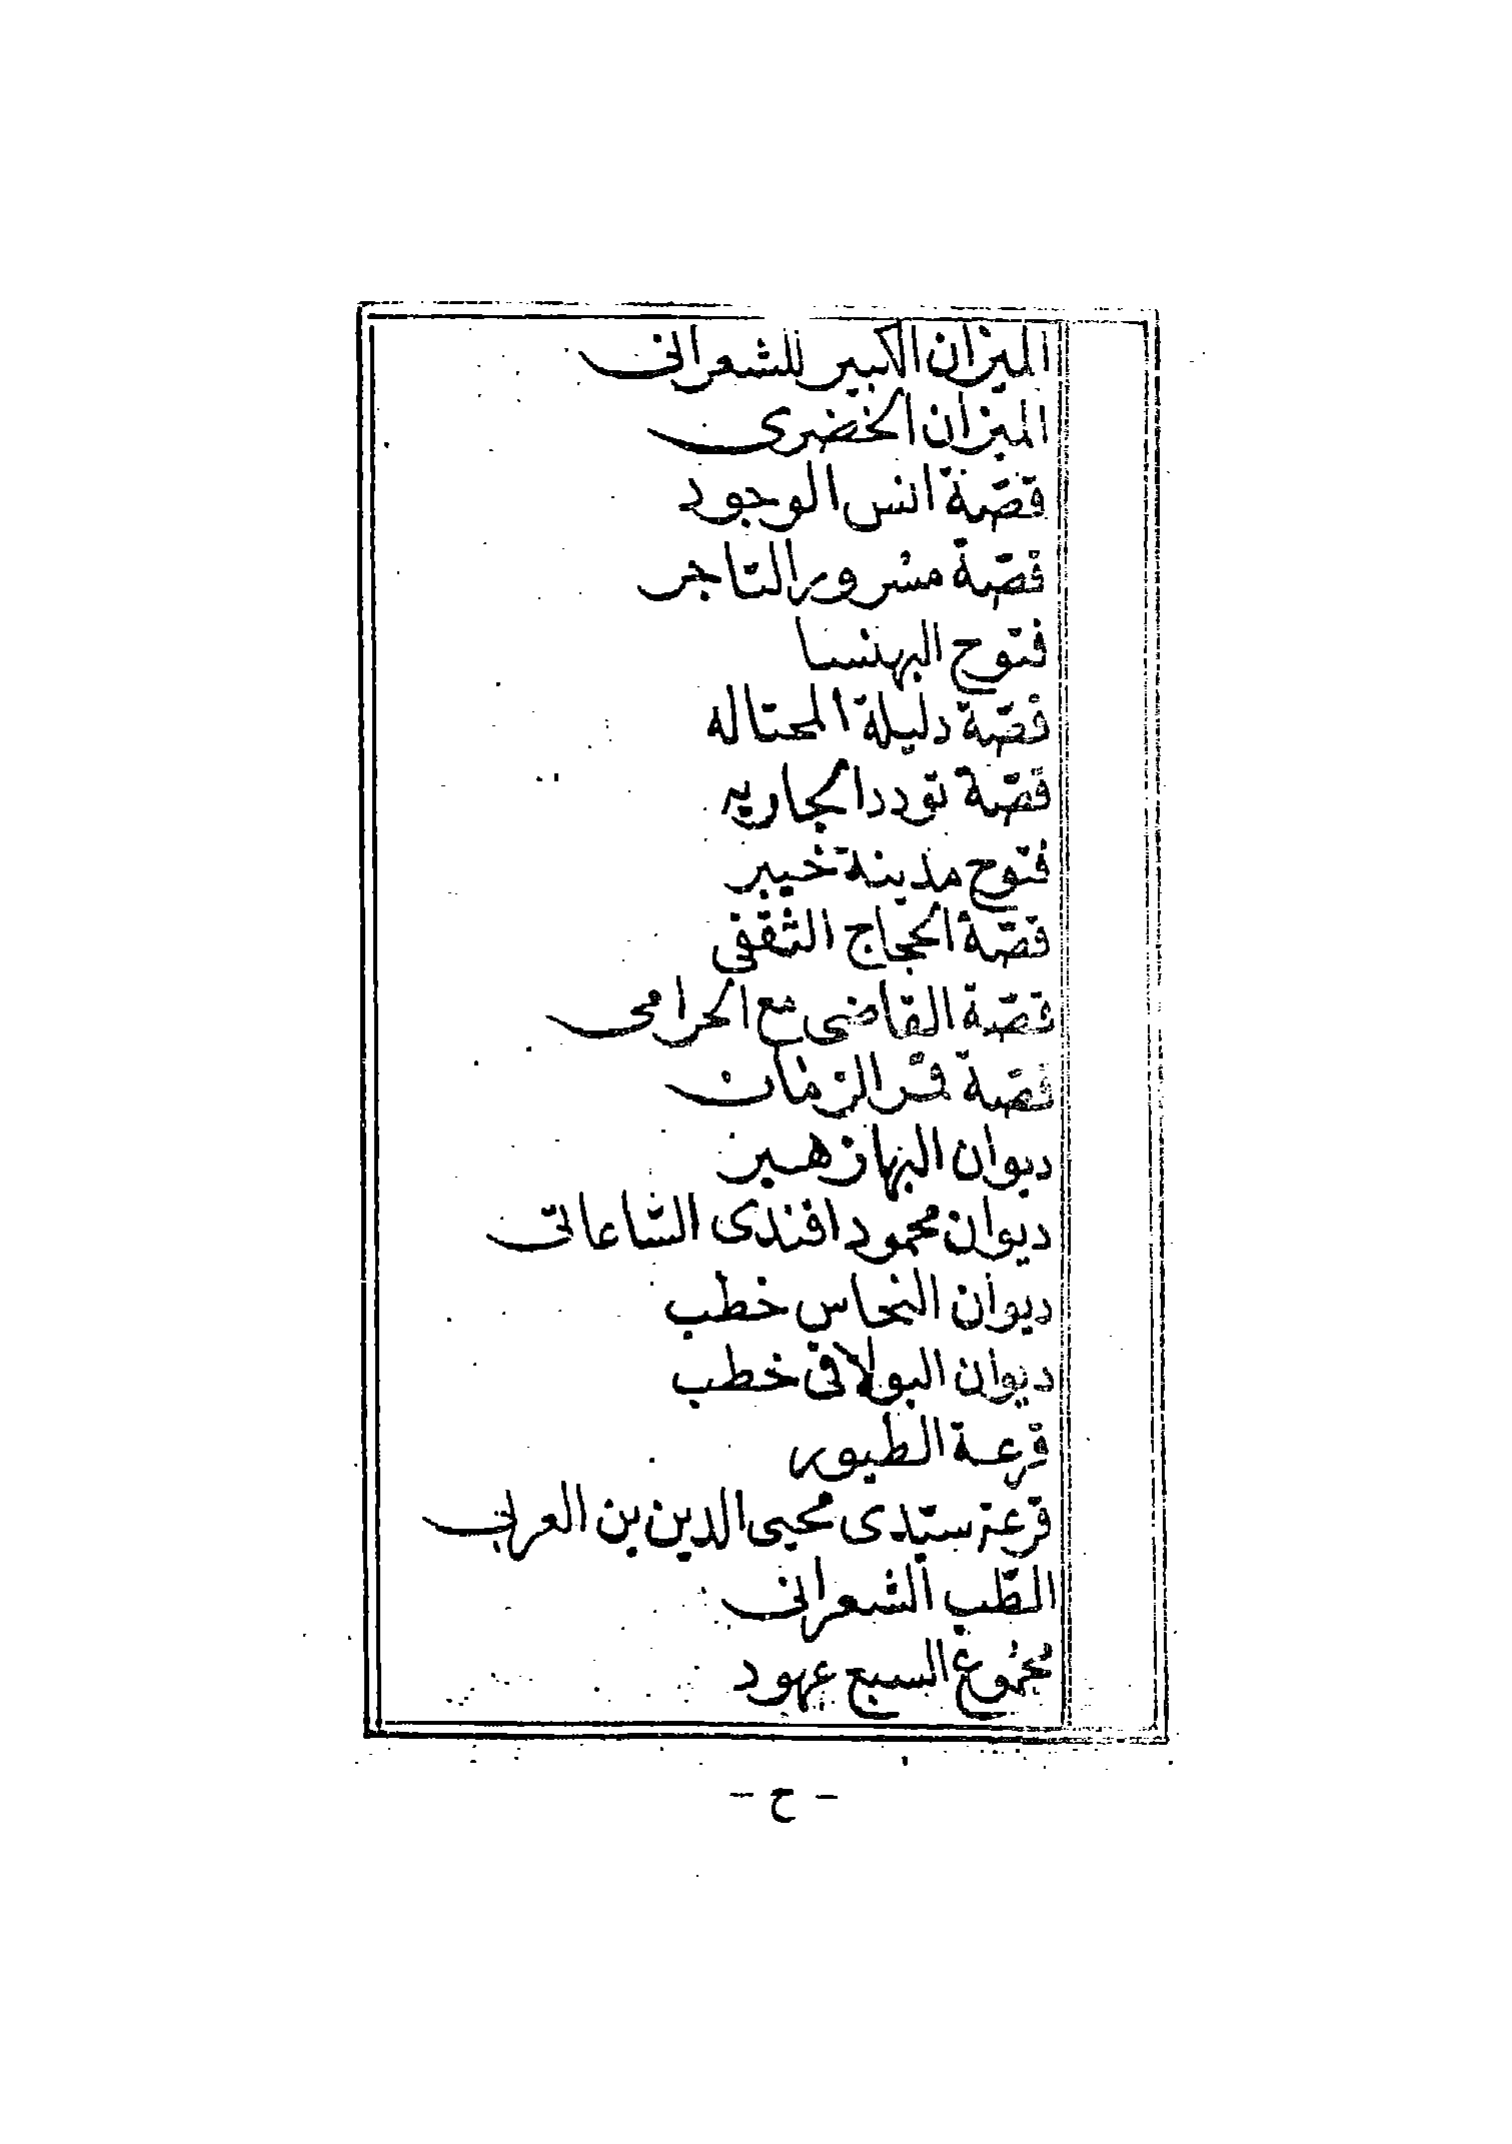 الميزان الكبير للشعرانى
الميزان الخضرى
قصّة انس الوجود
قصّة مسرور التاجر
فتوح البهنسا
قصّة دليلة المحتاله
قصّة تودد الجاريه
فتوح مدينة خيبر
قصّة الحجاج الثقفى
قصّة القاضى مع الحرامى
قصّة قمر الزمان
ديوان البهاز هير
ديوان محمود افندى الساعاتى
ديوان النحاس خطب
ديوان البولاقى خطب
قرعة الطيور
قرعة سيّدى محيى الدين بن العربى
الطّب الشعرانى
مجموع السبع عهود
- ح -